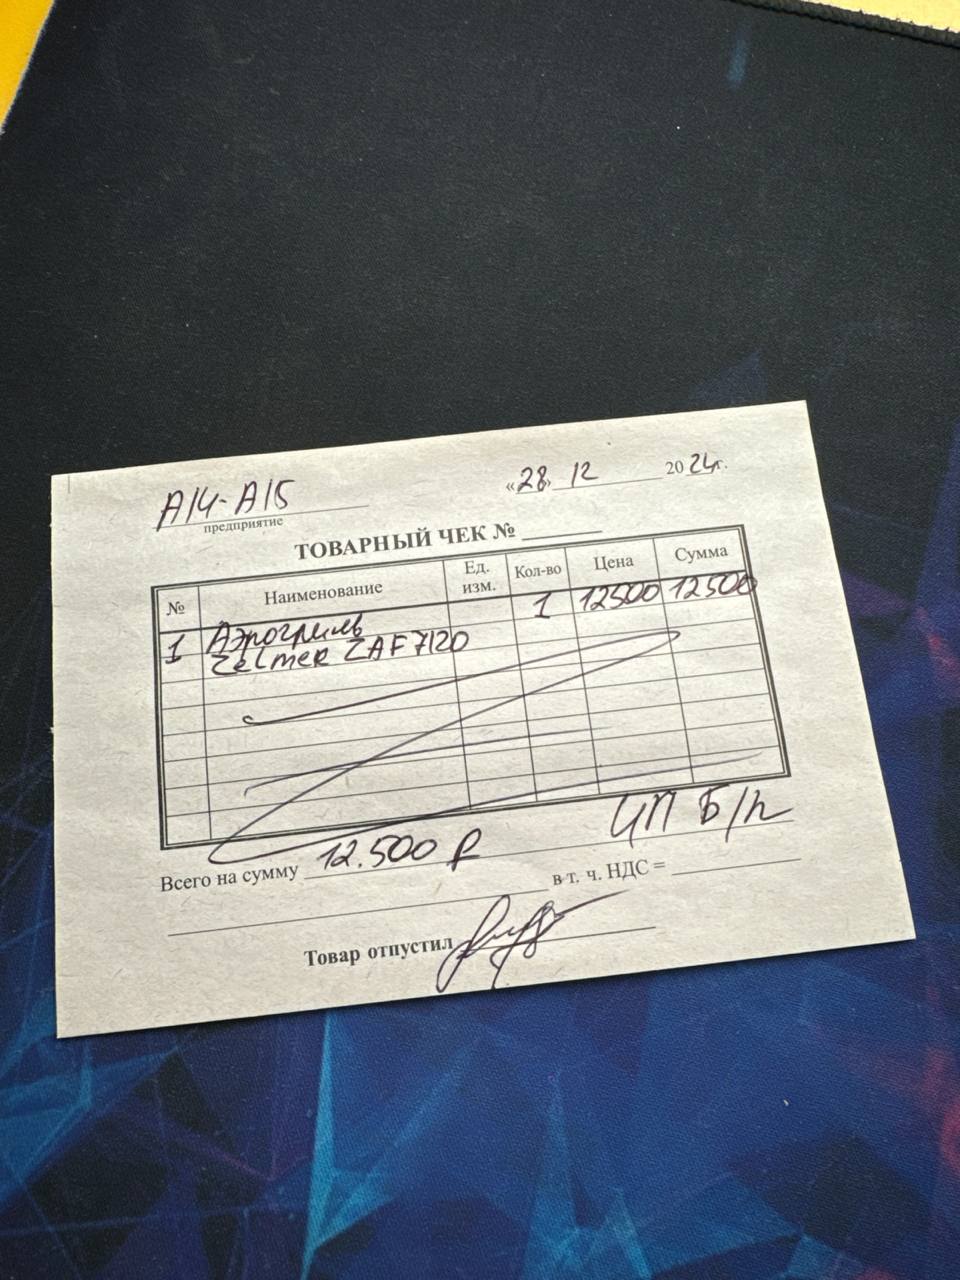 А14-А15 «28» 12 2024г.
предприятие
ТОВАРНЫЙ ЧЕК №
№ Наименование Ед. изм. Кол-во Цена Сумма
1 Аэрогриль 1 12500 12500
Zelmer ZAF7120
ЦП Б/н
Всего на сумму 12.500 ₽
в т. ч. НДС =
Товар отпустил